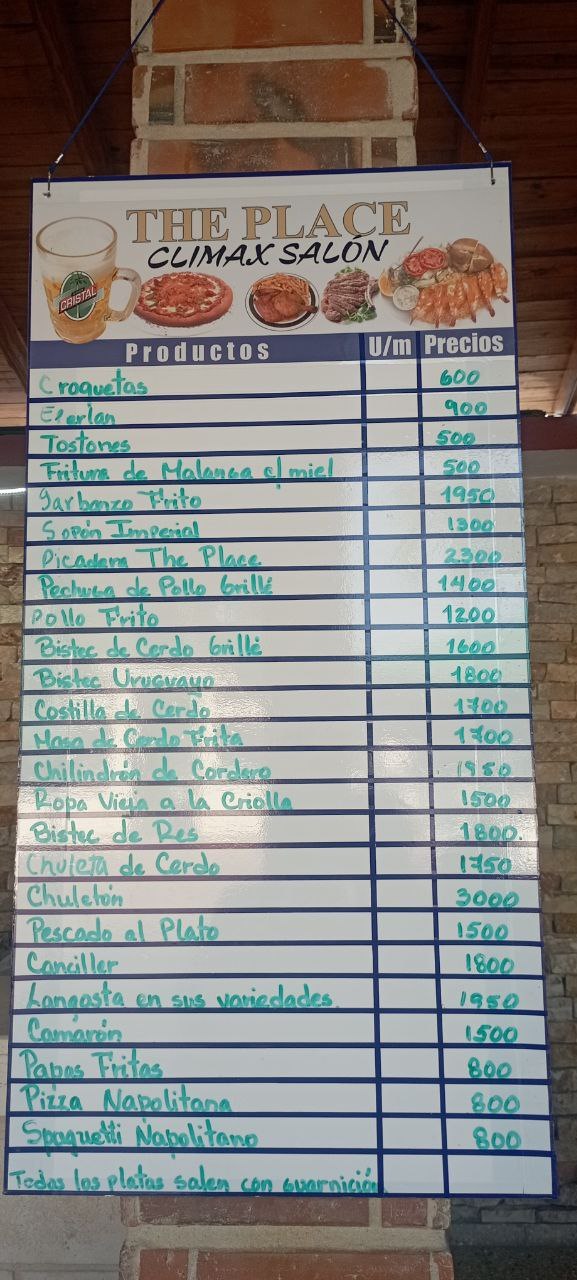 THE PLACE
CLIMAX SALÓN
CRISTAL
Productos U/m Precios
Croquetas 600
Eperlan 900
Tostones 500
Fritura de Malanga c/ miel 500
Garbanzo Frito 1950
Sopón Imperial 1300
Picadera The Place 2300
Pechuga de Pollo Grillé 1400
Pollo Frito 1200
Bistec de Cerdo Grillé 1600
Bistec Uruguayo 1800
Costilla de Cerdo 1700
Masa de Cerdo Frita 1700
Chilindrón de Cordero 1950
Ropa Vieja a la Criolla 1500
Bistec de Res 1800
Chuleta de Cerdo 1750
Chuletón 3000
Pescado al Plato 1500
Canciller 1800
Langosta en sus variedades 1950
Camarón 1500
Papas Fritas 800
Pizza Napolitana 800
Spaguetti Napolitano 800
Todos los platos salen con guarnición